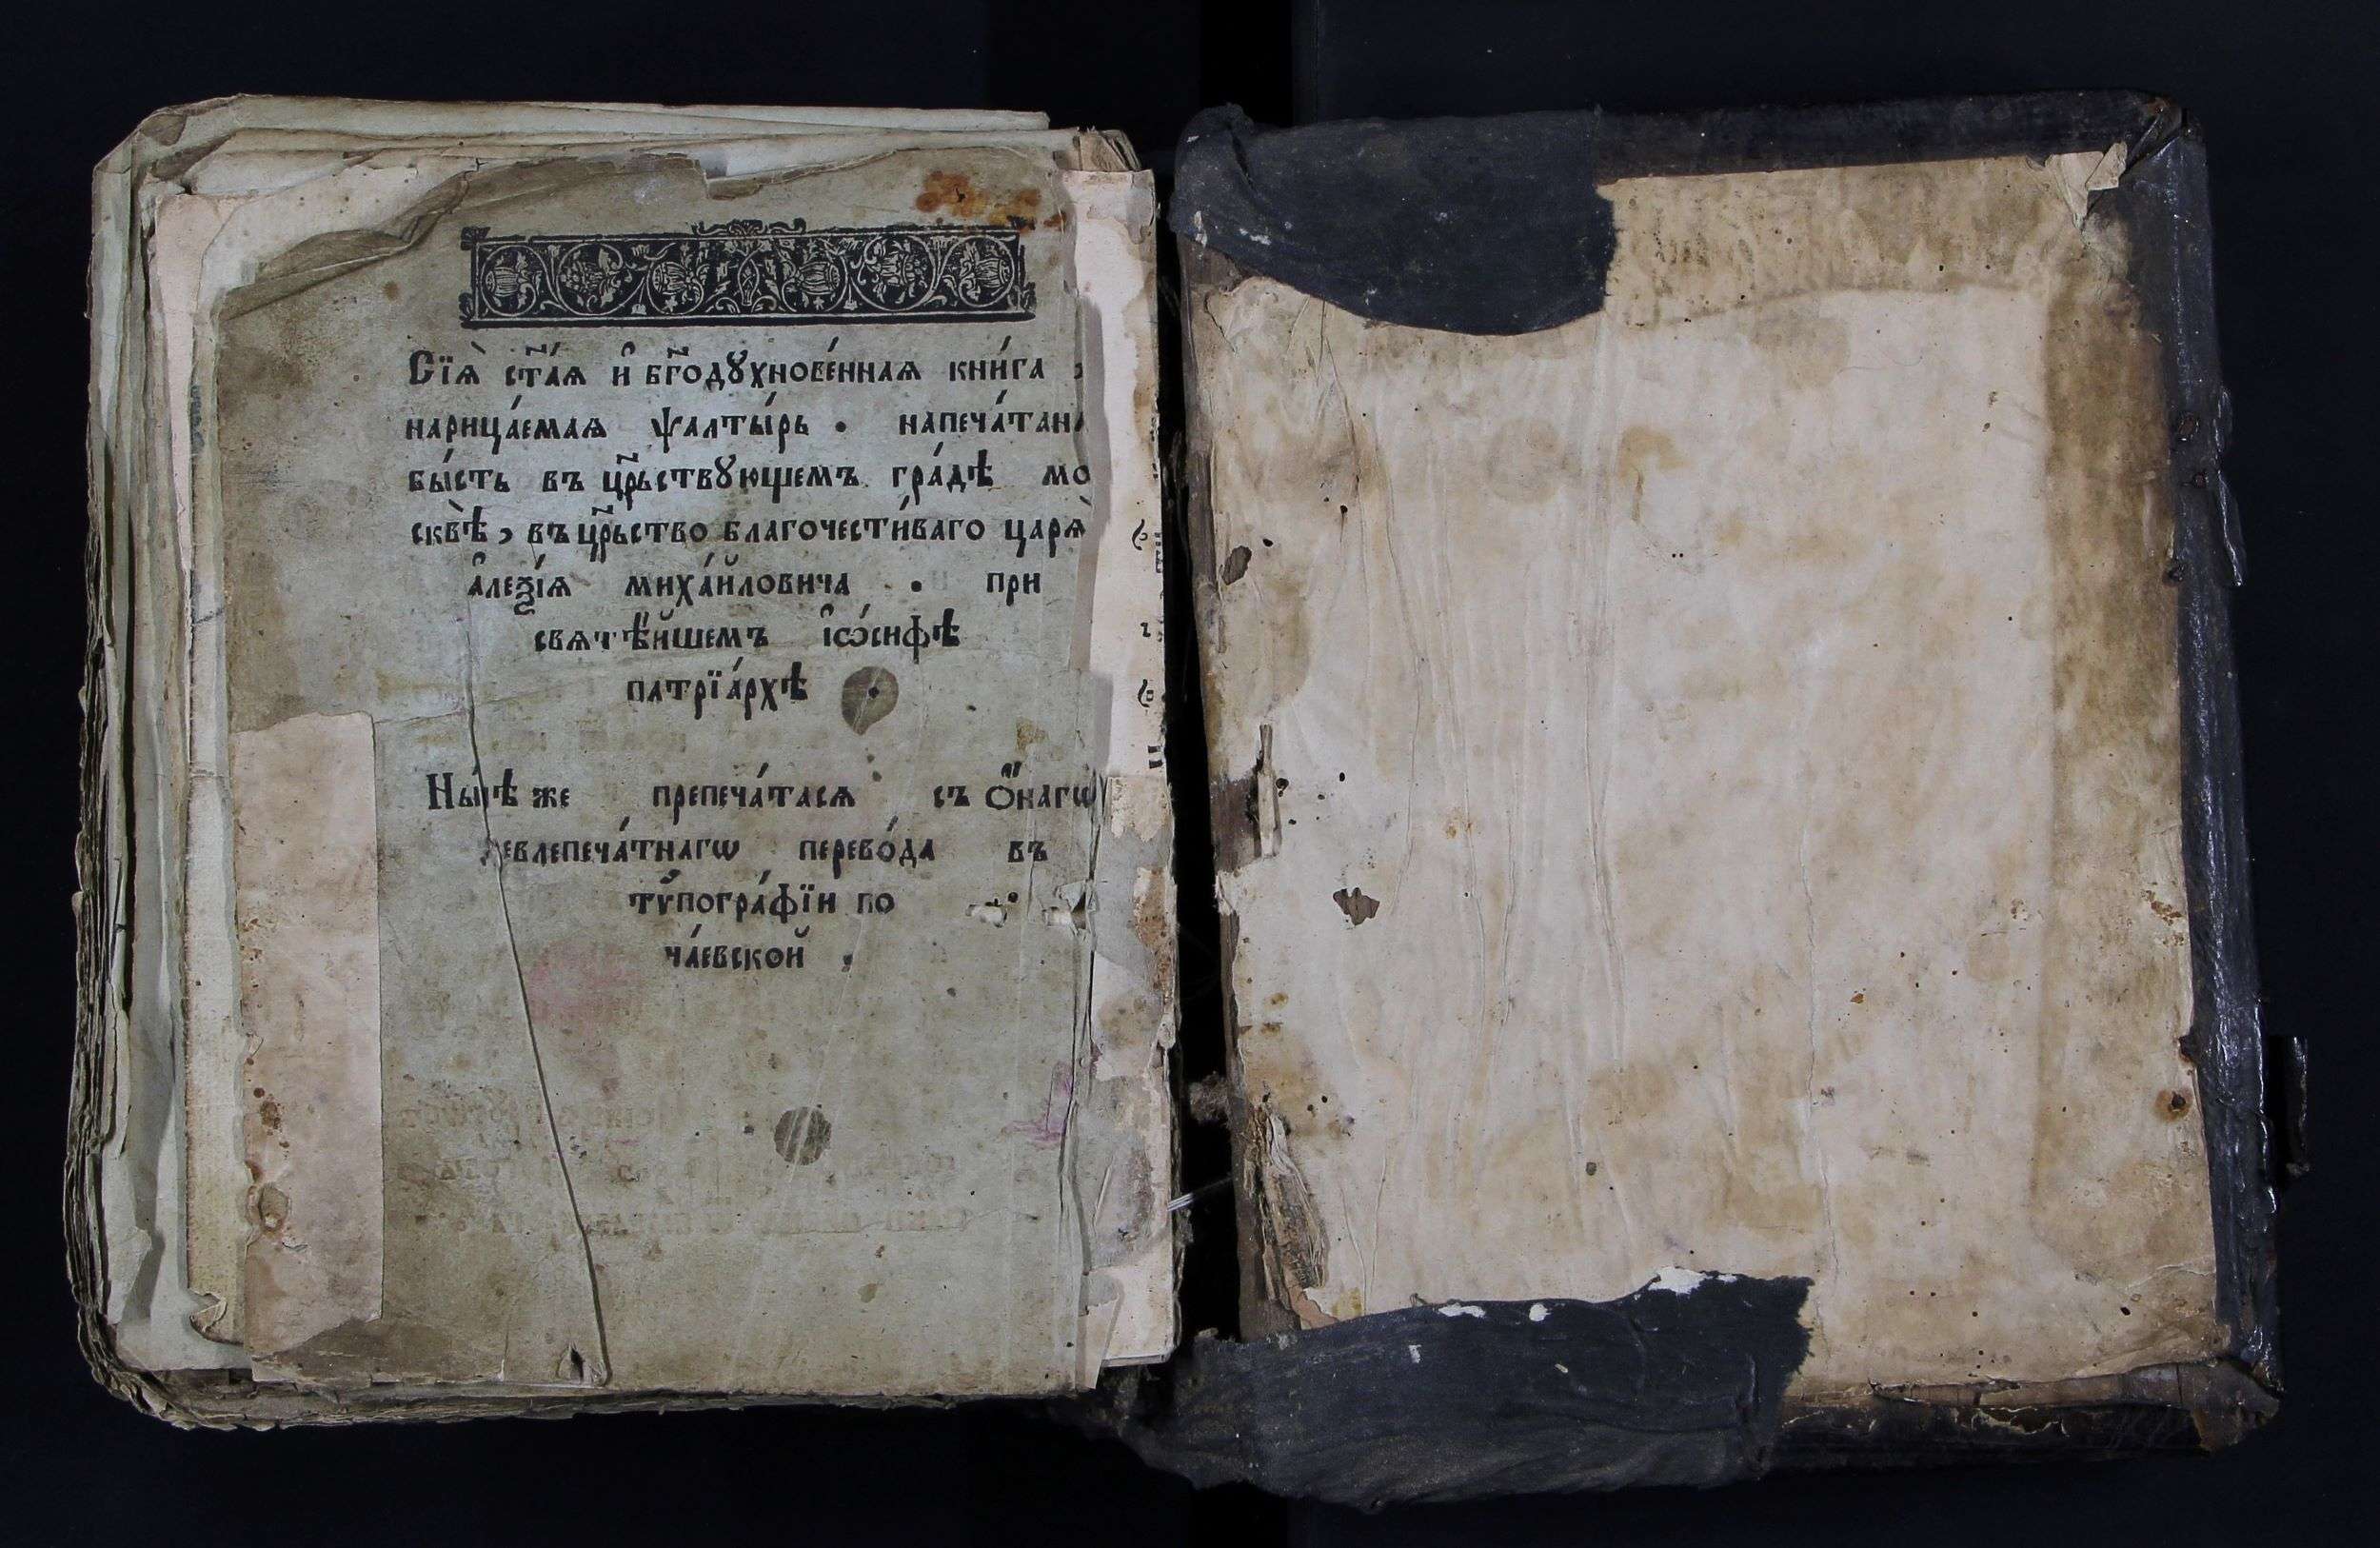 Сїѧ̀ ст҃а́ѧ и҆ бг҃одꙋхнове́ннаѧ кни́га ,
нарица́емаѧ ѱалты́рь . напеча́тана
бы́сть въ цр҃ьствꙋющемъ гра́дѣ мо
сквѣ̀ , въ цр҃ьство благочести́ваго царѧ̀
а҆леѯі́ѧ миха́йловича . при
свѧтѣ́йшемъ і҆ѡ́сифѣ
патрїа́рхѣ
Нн҃ѣ же препеча́тасѧ съ ѻ҆́нагѡ
левлепеча́тнагѡ перево́да въ
тѷпогра́фїи по
ча́евской .